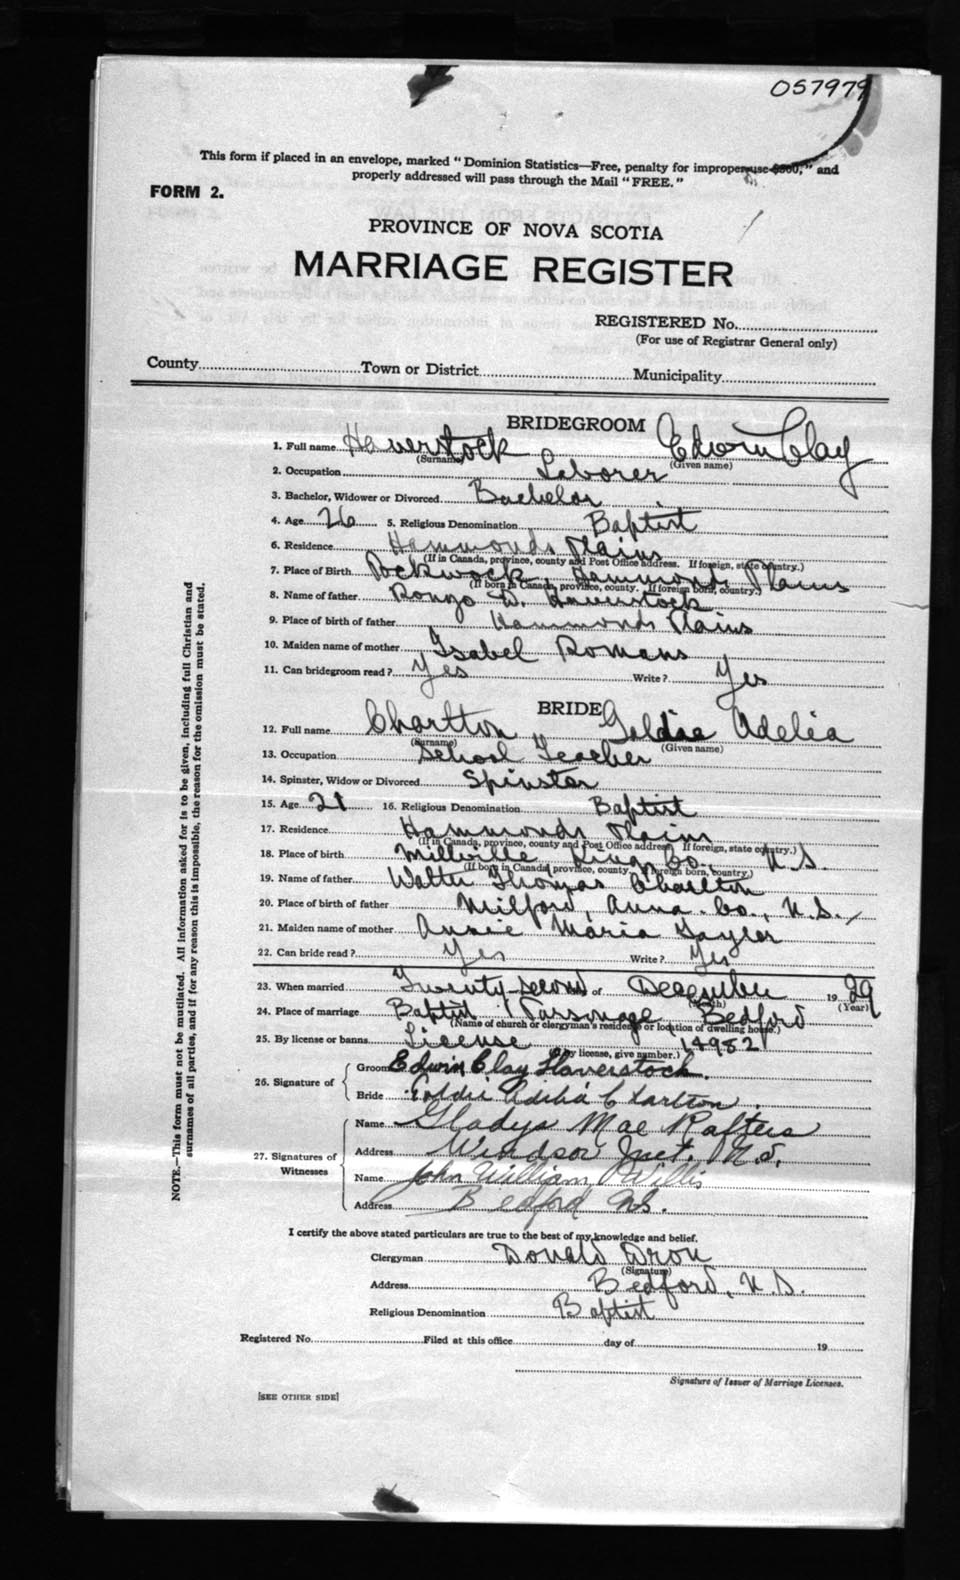 057979
This form if placed in an envelope, marked "Dominion Statistics—Free, penalty for improper use $300," and
properly addressed will pass through the Mail "FREE."
FORM 2.
PROVINCE OF NOVA SCOTIA
MARRIAGE REGISTER
REGISTERED No.
(For use of Registrar General only)
County Town or District Municipality
BRIDEGROOM
1. Full name Haverstock Edwin Clay
(Surname) (Given name)
2. Occupation Laborer
3. Bachelor, Widower or Divorced Bachelor
4. Age 26 5. Religious Denomination Baptist
6. Residence Hammonds Plains
(If in Canada, province, county and Post Office address. If foreign, state country.)
7. Place of Birth Pockwock, Hammonds Plains
(If born in Canada, province, county. If foreign born, country.)
8. Name of father D. Haverstock
9. Place of birth of father Hammonds Plains
10. Maiden name of mother Isabel Romans
11. Can bridegroom read? Yes Write? Yes
BRIDE
12. Full name Charlton, Goldie Adelia
(Surname) (Given name)
13. Occupation School Teacher
14. Spinster, Widow or Divorced Spinster
15. Age 21 16. Religious Denomination Baptist
17. Residence Hammonds Plains
(If in Canada, province, county and Post Office address. If foreign, state country.)
18. Place of birth Millville Kings Co., N.S.
(If born in Canada, province, county. If foreign born, country.)
19. Name of father Walter Thomas Charlton
20. Place of birth of father Milford, Anna. Co., N.S.
21. Maiden name of mother Annie Maria Taylor
22. Can bride read? Yes Write? Yes
23. When married Twenty-second of December 1929
(Month) (Year)
24. Place of marriage Baptist Parsonage Bedford
(Name of church or clergyman's residence or location of dwelling house.)
25. By license or banns License 14982
(If by license, give number.)
26. Signature of Groom Edwin Clay Haverstock.
Bride Goldie Adelia Charlton.
27. Signatures of Witnesses
Name Gladys Mae Rafters
Address Windsor Junct. N.S.
Name John William Willis
Address Bedford N.S.
I certify the above stated particulars are true to the best of my knowledge and belief.
Clergyman Donald Dron
(Signature)
Address Bedford, N.S.
Religious Denomination Baptist
Registered No. Filed at this office day of 19
Signature of Issuer of Marriage Licenses.
[SEE OTHER SIDE]
NOTE.—This form must not be mutilated. All information asked for is to be given, including full Christian and
surnames of all parties, and if for any reason this is impossible, the reason for the omission must be stated.